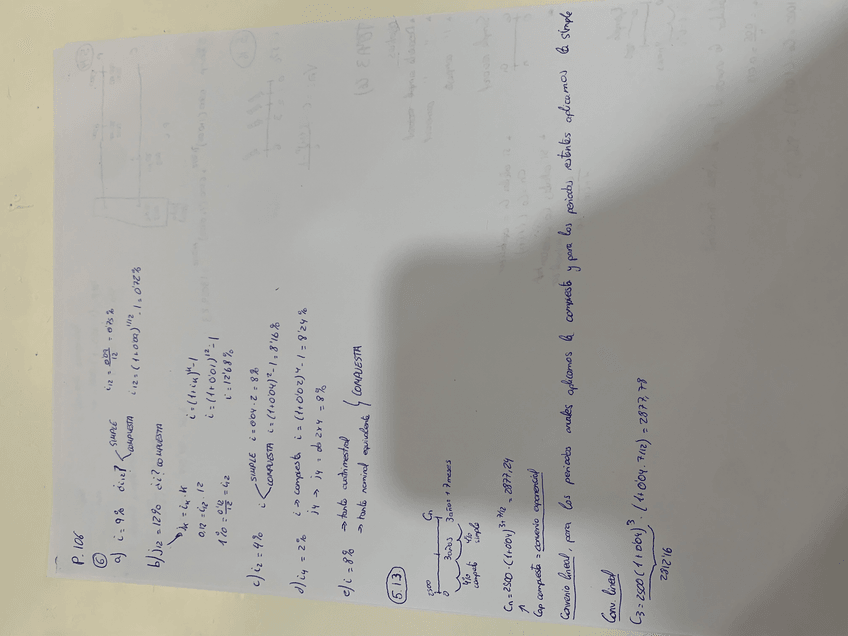 P. 106
⑥
a) i = 9% ¿i12? SIMPLE i12 = 0'09/12 = 0'75%
COMPUESTA i12 = (1+0'09)^1/12 - 1 = 0'72%
b) j12 = 12% ¿i? COMPUESTA
jk = ik · k i = (1+ik)^k - 1
0,12 = i12 · 12 i = (1+0'01)^12 - 1
1% = 0'12/12 = i12 i = 12'68%
c) i2 = 4% i SIMPLE i = 0'04 · 2 = 8%
COMPUESTA i = (1+0'04)^2 - 1 = 8'16%
d) i4 = 2% i → compuesta i = (1+0'02)^4 - 1 = 8'24%
j4 → j4 = 2 x 4 = 8%
e) i = 8% → tanto cuatrimestral
→ tanto nominal equivalente } COMPUESTA
5.13
2500 Cn
0 3 años 3 años + 7 meses
4% compuesta 4% simple
Cn = 2500 · (1+0'04)^3+7/12 = 2877,24
↑
Cap compuesta = convenio exponencial
Convenio lineal, para los periodos anuales aplicamos la compuesta y para los periodos restantes aplicamos la simple
Conv. lineal
C3 = 2500 (1+0'04)^3 · (1+0'04 · 7/12) = 2877,78
2812'16